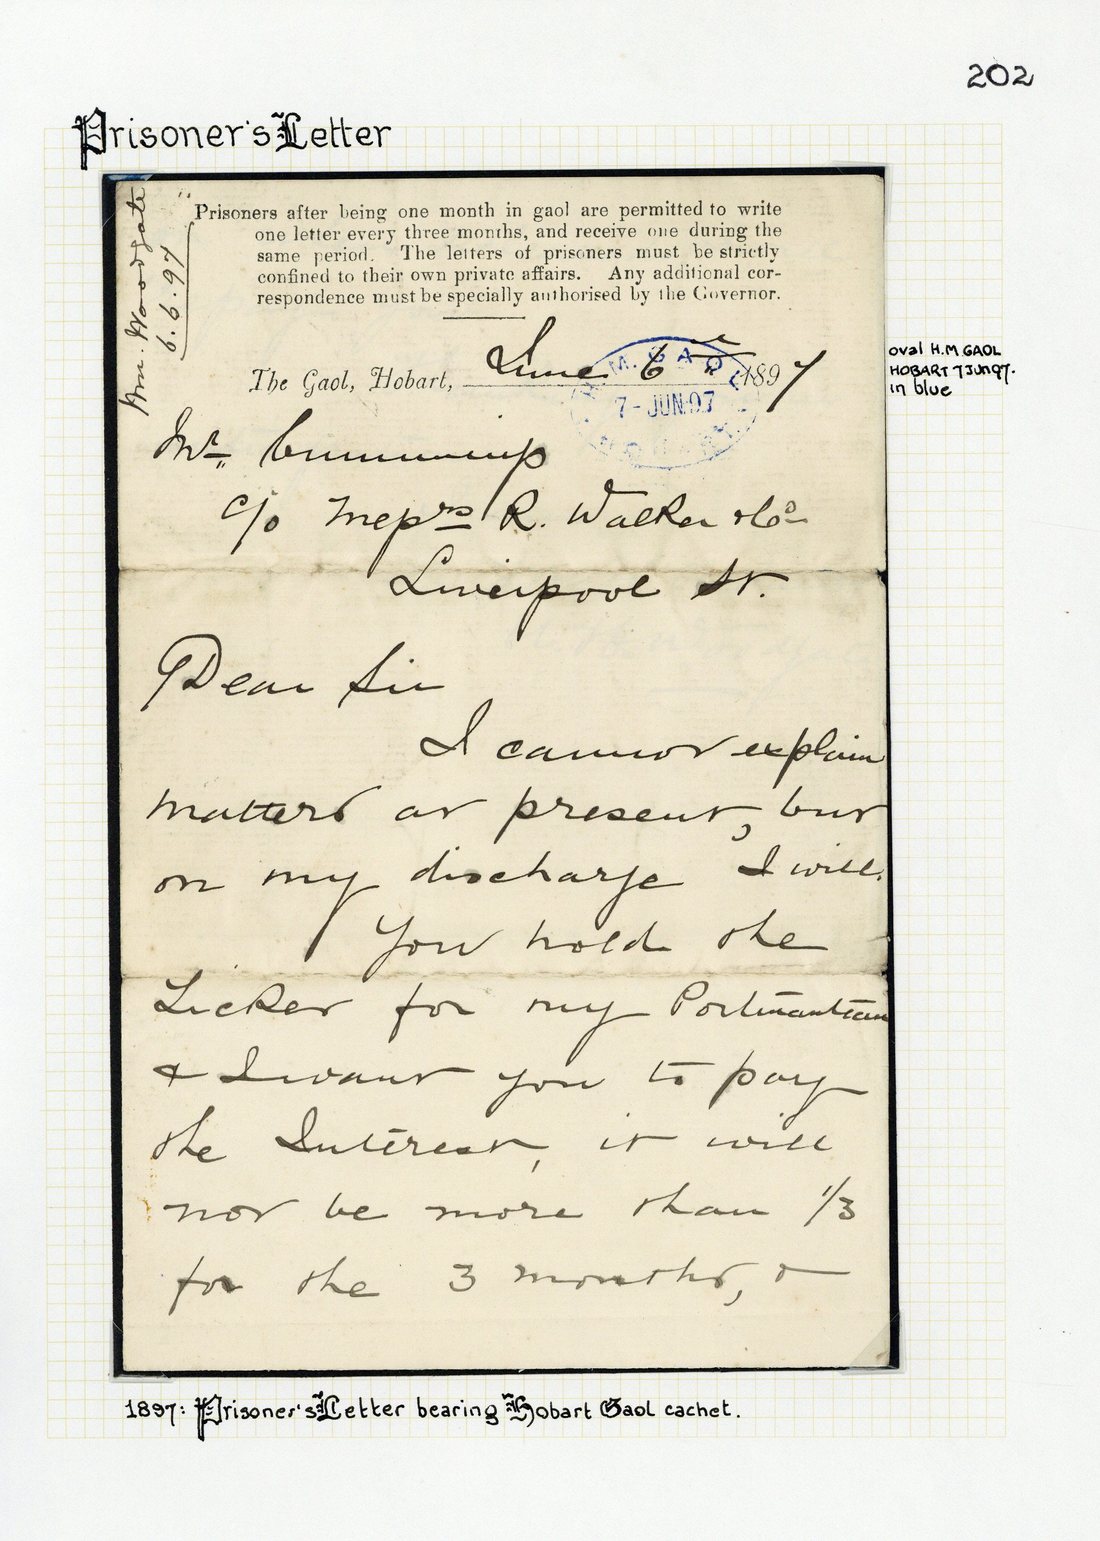 202
Prisoner's Letter
Wm. Woodgate
6.6.97
Prisoners after being one month in gaol are permitted to write
one letter every three months, and receive one during the
same period. The letters of prisoners must be strictly
confined to their own private affairs. Any additional cor-
respondence must be specially authorised by the Governor.
The Gaol, Hobart, June 6th 1897
H.M. GAOL
7-JUN.97
HOBART
oval H.M. GAOL
HOBART 7 JUN 97.
in blue
Mr. Cummings
c/o Messrs R. Walker & Co
Liverpool St.
Dear Sir
I cannot explain
matters at present, but
on my discharge I will.
You hold the
Ticket for my Portmanteau
& I want you to pay
the Interest, it will
not be more than 1/3
for the 3 months, &
1897: Prisoner's Letter bearing Hobart Gaol cachet.